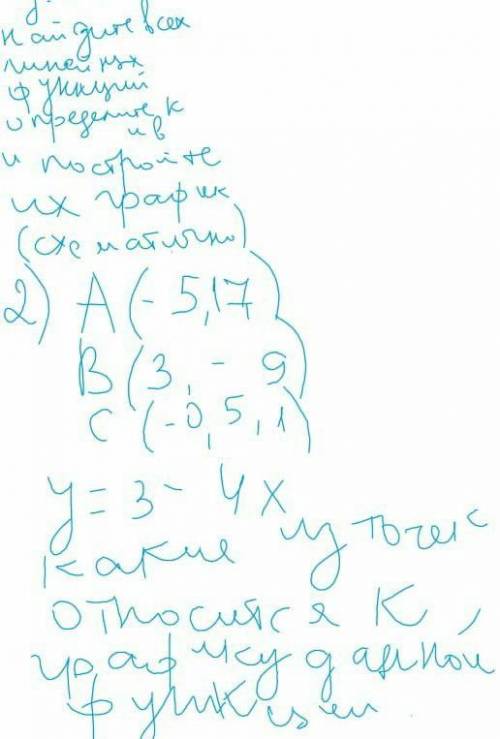 найдите всех
линейных
функций
определите к
и в
и постройте
их график
(схематично)
2) A (-5,17)
B (3, -9)
C (-0,5,1)
y = 3 - 4x
какие из точек
относится к
графику данной
функции